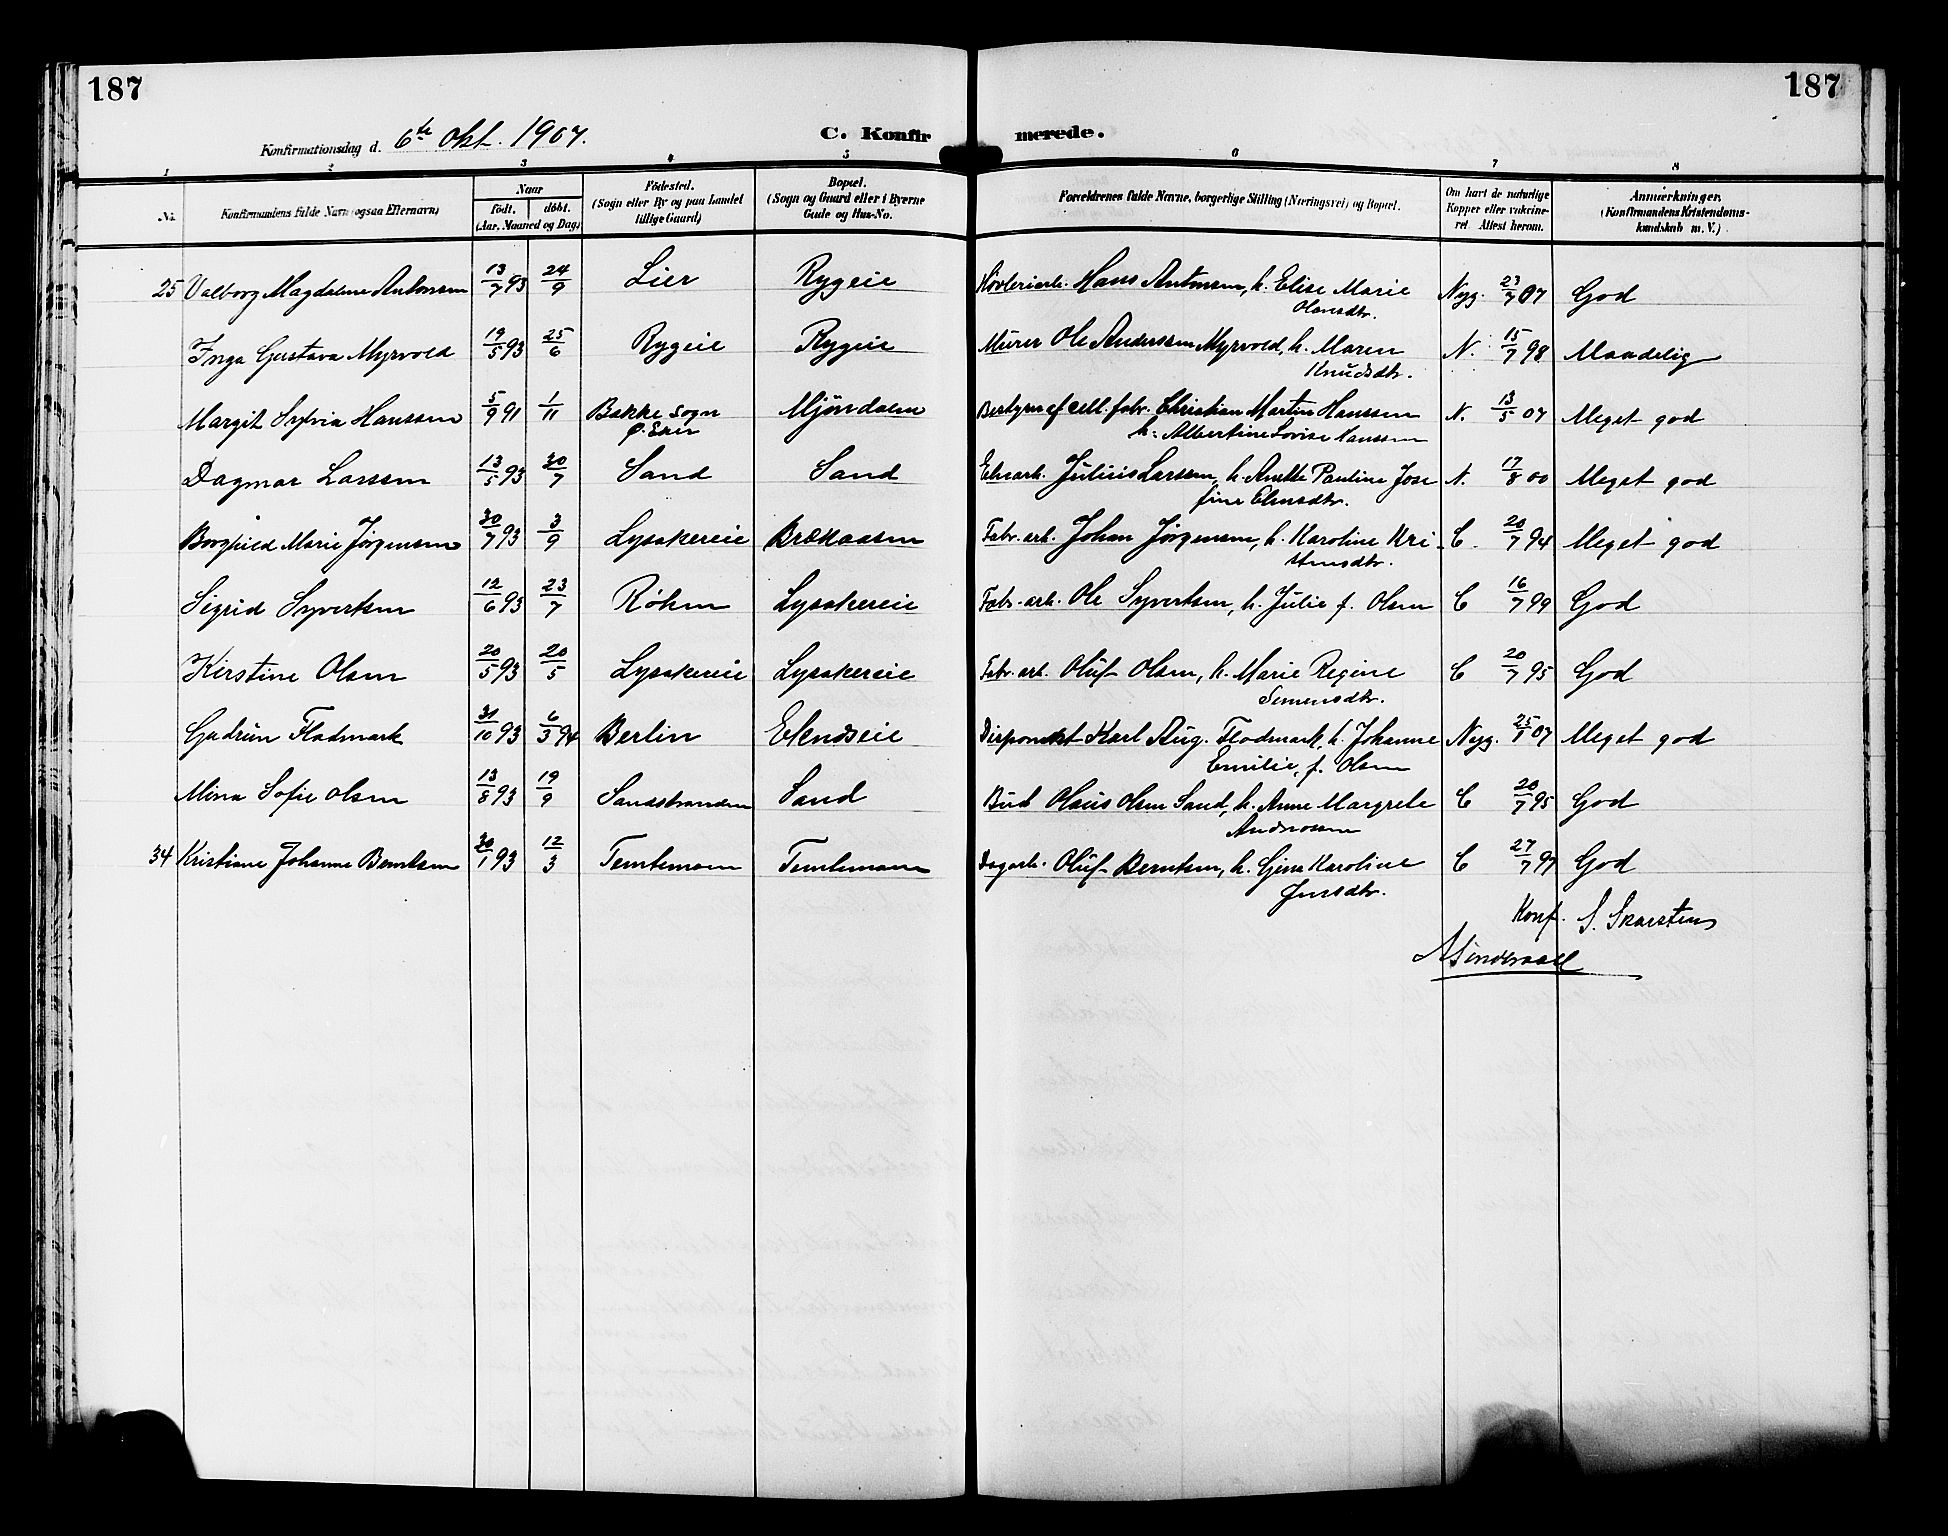 187
187
Konfirmationsdag d. 6te Okt. 1907.
C. Konfir
merede.
1 2 3 4 5 6 7 8
No.
Konfirmandens fulde Navn (ogsaa Efternavn)
Naar
födt. döbt.
(Aar, Maaned og Dag)
Födested.
(Sogn eller By og paa Landet
tillige Gaard)
Bopæl.
(Sogn og Gaard eller i Byerne
Gade og Hus-No.
Forældrenes fulde Navne, borgerlige Stilling (Næringsvei) og Bopæl.
Om havt de naturlige
Kopper eller vakcine-
ret Attest herom.
Anmærkninger.
(Konfirmandens Kristendoms-
kundskab m. V.)
25 Valborg Magdalene Antonsen 13/7 93 24/9 Lier Rygeie Høvleriarb. Hans Antonsen, h. Elise Marie Nyg. 23/7 07 God
Olausdtr.
Inga Gustava Myrvold 19/5 93 25/6 Rygeie Rygeie Murer Ole Anderssen Myrvold, h. Maren N. 15/7 98 Maadelig
Knudsdtr.
Margit Sylvia Hanssen 5/9 91 1/11 Bakke sogn Mjöndalen Bestyrer af cell. fabr. Christian Martin Hanssen N. 13/5 07 Meget god
Ø. Eker h. Albertine Lovise Hanssen
Dagmar Larssen 13/5 93 30/7 Sand Sand Julius Larssen, h. Anette Pauline Jose N. 17/8 00 Meget god
fine
Borghild Marie Jørgensen 30/7 93 3/9 Lysakereie Brækaasen Fabr. arb. Johan Jørgensen, h. Karoline Kri- C. 20/7 94 Meget god
stensdtr.
Sigrid Syvertsen 12/6 93 23/7 Røken Lysakereie Fabr. arb. Ole Syvertsen, h. Julie f. Olsen C 16/7 99 God
Kirstine Olsen 20/5 93 20/5 Lysakereie Lysakereie Fabr. arb. Oluf Olsen, h. Marie Regine C 20/7 95 God
Simensdtr.
Gudrun Flodmark 31/10 93 6/3 94 Berlin Eknæseie Disponent Karl Aug. Flodmark, h. Johanne Nyg. 25/1 07 Meget god
Emilie, f. Olsen
Mina Sofie Olsen 13/8 93 19/9 Sandstranden Sand Bud Olaus Olsen Sand, h. Anne Margrete C 20/7 95 God
34 Kristiane Johanne Berntsen 30/1 93 12/3 Temtemoen Temtemoen Dagarb. Oluf Berntsen, h. Gina Karoline C 27/7 97 God
Jensdtr.
Konf. S. Skarsten